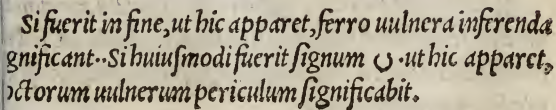 Si fuerit in fine, ut hic apparet, ferro uulnera inferenda
gnificant·· Si huiuſmodi fuerit ſignum · ut hic apparet,
ctorum uulnerum periculum ſignificabit.